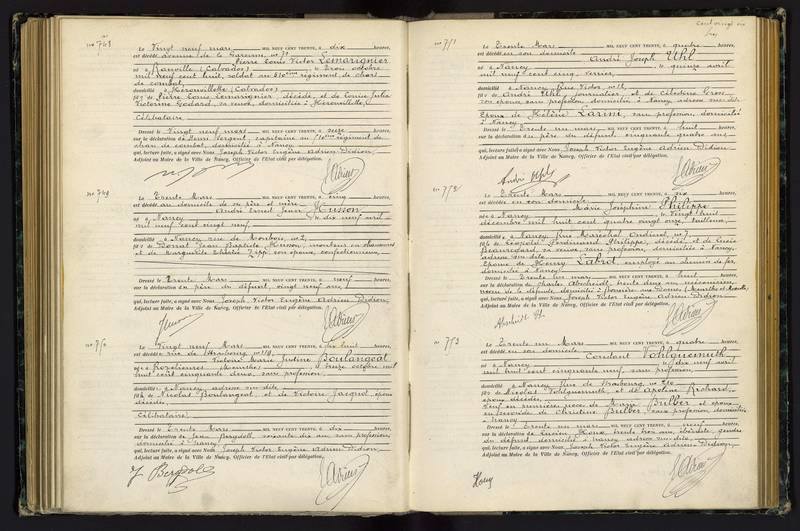 N° 748
Le Vingt neuf mars MIL NEUF CENT TRENTE, à dix heures,
est décédé avenue de la Garenne, n°
Pierre Louis Victor Lemarignier
né à Ranville (Calvados), le trois octobre
mil neuf cent huit, soldat au 510ème régiment de chars
de combat,
domicilié à Hérouvillette (Calvados)
fils de Pierre Louis Lemarignier, décédé, et de Louise Julia
Victorine Godard, sa veuve, domiciliée à Hérouvillette,
Célibataire
Dressé le Vingt neuf mars MIL NEUF CENT TRENTE, à seize heures,
sur la déclaration de Henri Sergent, capitaine au 510ème régiment de
chars de combat, domicilié à Nancy
qui, lecture faite, a signé avec Nous Joseph Victor Eugène Adrien Didion
Adjoint au Maire de la Ville de Nancy, Officier de l'Etat civil par délégation.
N° 749
Le Trente Mars MIL NEUF CENT TRENTE, à cinq heures,
est décédé au domicile de ses père et mère
André Ernest Jean Husson
né à Nancy, le dix avril
mil neuf cent vingt,
domicilié à Nancy, rue de Monbois, n° 2,
fils de Jean Baptiste Husson, monteur en chaussures
et de Marguerite Zipp, son épouse,
Dressé le Trente Mars MIL NEUF CENT TRENTE, à neuf heures,
sur la déclaration du père du défunt, vingt neuf ans,
qui, lecture faite, a signé avec Nous Joseph Victor Eugène Adrien Didion
Adjoint au Maire de la Ville de Nancy, Officier de l'Etat civil par délégation.
N° 750
Le Vingt neuf Mars MIL NEUF CENT TRENTE, à dix huit heures,
est décédée rue de Strasbourg n° 119,
Victoire Marie Justine Boulangeot
née à Rozelieures (Meurthe), le treize octobre mil
huit cent cinquante deux, sans profession,
domiciliée à Nancy, adresse sus-dite
fille de Nicolas Boulangeot, et de Victoire Jacquot, époux
décédés,
Célibataire
Dressé le Trente Mars MIL NEUF CENT TRENTE, à dix heures,
sur la déclaration de Jean Bergdoll, soixante dix ans, sans profession,
domicilié à Nancy
qui, lecture faite, a signé avec Nous Joseph Victor Eugène Adrien Didion
Adjoint au Maire de la Ville de Nancy, Officier de l'Etat civil par délégation.
J Bergdoll
Cent vingt six
N° 751
Le Trente Mars MIL NEUF CENT TRENTE, à quatre heures,
est décédé en son domicile
André Joseph Uhl
né à Nancy, le quinze avril
mil neuf cent cinq, verrier,
domicilié à Nancy,
fils de André Uhl, journalier, et de Célestine Gros
son épouse, sans profession, domiciliés à Nancy, adresse sus-dite
Époux de Hélène Larini, sans profession, domiciliée
à Nancy
Dressé le Trente un mars MIL NEUF CENT TRENTE, à huit heures,
sur la déclaration du père du défunt, cinquante quatre ans,
qui, lecture faite, a signé avec Nous Joseph Victor Eugène Adrien Didion
Adjoint au Maire de la Ville de Nancy, Officier de l'Etat civil par délégation.
N° 752
Le Trente Mars MIL NEUF CENT TRENTE, à dix heures,
est décédée en son domicile
Marie Joséphine Philippe
née à Nancy, le Vingt huit
décembre mil huit cent quatre vingt onze, tailleuse,
domiciliée à Nancy, rue Maréchal Oudinot, n° 7,
fille de Léopold Ferdinand Philippe, décédé, et de Lucie
Beauregard, sa veuve, sans profession, domiciliée à Nancy,
adresse sus-dite
Épouse de Henry Labrot, employé au chemin de fer,
domicilié à Nancy
Dressé le Trente un mars MIL NEUF CENT TRENTE, à huit heures,
sur la déclaration de Charles Abscheidt, trente cinq ans, mécanicien,
neveu de la défunte, domicilié à (Meurthe et Moselle),
qui, lecture faite, a signé avec Nous Joseph Victor Eugène Adrien Didion
Adjoint au Maire de la Ville de Nancy, Officier de l'Etat civil par délégation.
Abscheidt Ch.
N° 753
Le Trente un Mars MIL NEUF CENT TRENTE, à quatre heures,
est décédé en son domicile Constant Vohlguemuth
né à Nancy, le dix avril
mil huit cent cinquante neuf, sans profession,
domicilié à Nancy rue de Strasbourg n° 210
fils de Nicolas Vohlguemuth, et de Apoline Richard,
époux décédés,
Veuf en premières noces de Marie Bulber et époux
en secondes de Christine Bulber, sans profession, domiciliée
à Nancy
Dressé le Trente un mars MIL NEUF CENT TRENTE, à neuf heures,
sur la déclaration de Lucien Houx, trente trois ans, ébéniste, gendre
du défunt, domicilié à Nancy, adresse sus-dite,
qui, lecture faite, a signé avec Nous Joseph Victor Eugène Adrien Didion
Adjoint au Maire de la Ville de Nancy, Officier de l'Etat civil par délégation.